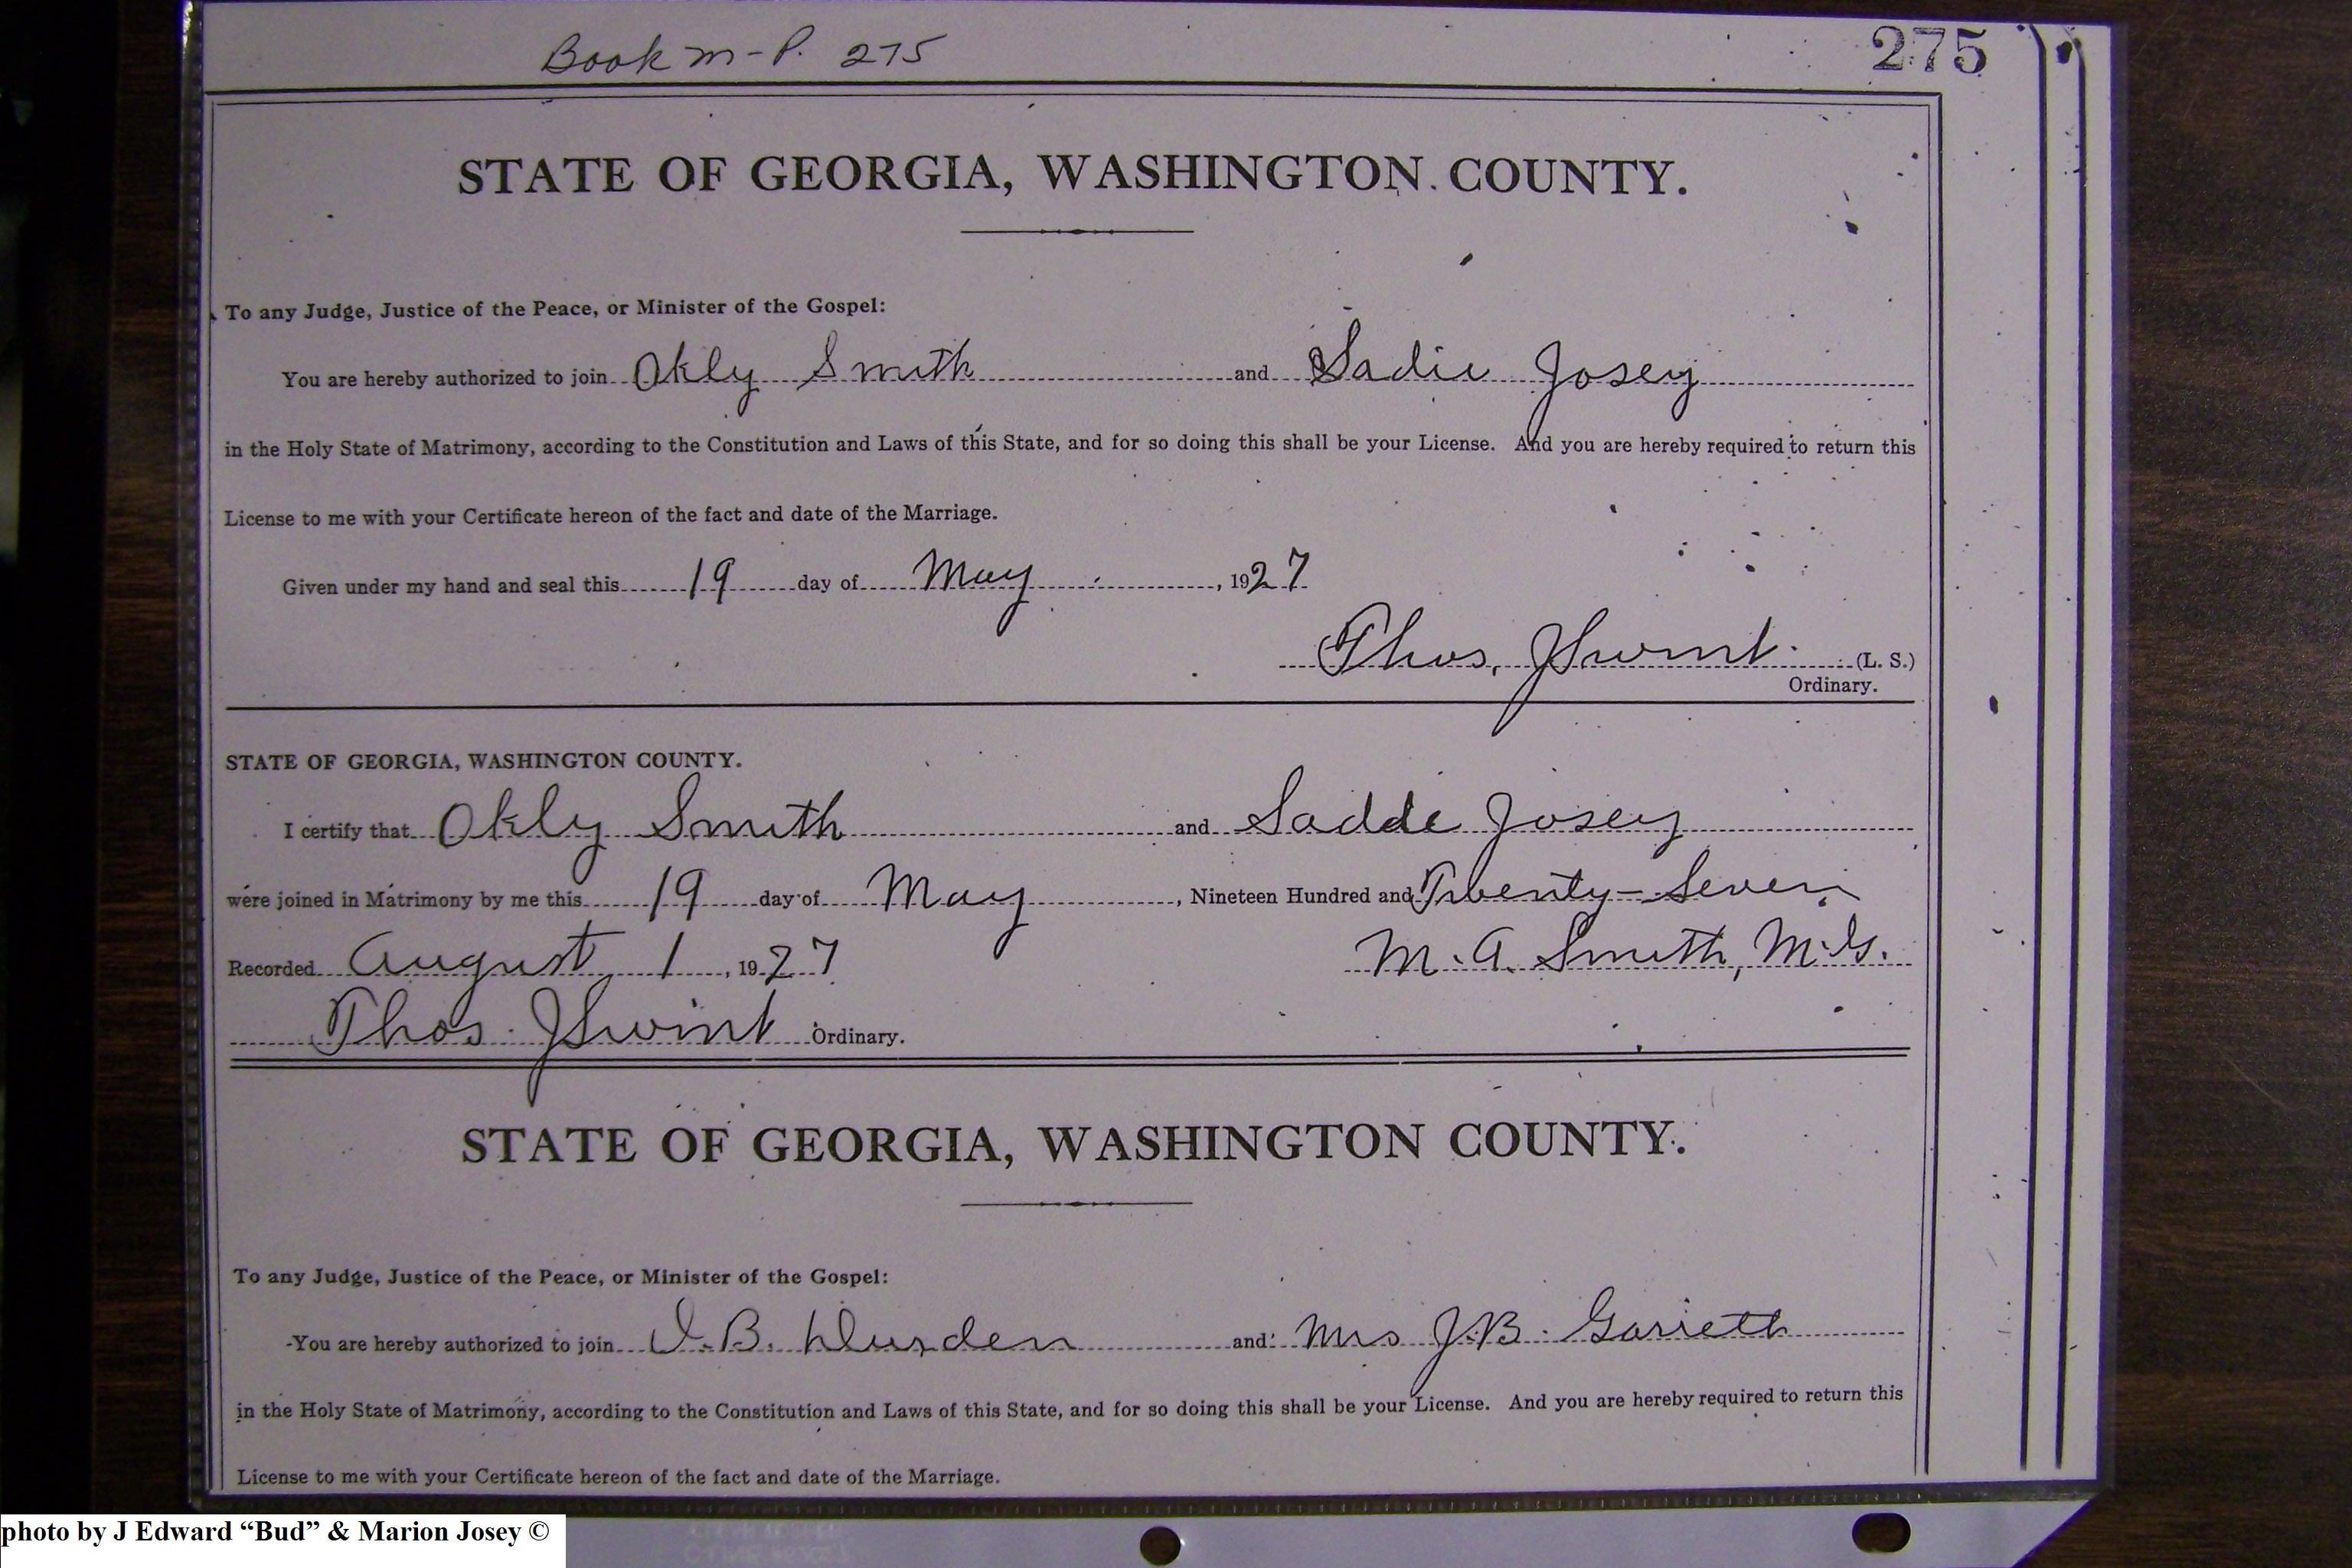 Book M - P. 275
275
STATE OF GEORGIA, WASHINGTON COUNTY.
To any Judge, Justice of the Peace, or Minister of the Gospel:
You are hereby authorized to join Okly Smith and Sadie Josey
in the Holy State of Matrimony, according to the Constitution and Laws of this State, and for so doing this shall be your License. And you are hereby required to return this
License to me with your Certificate hereon of the fact and date of the Marriage.
Given under my hand and seal this 19 day of May, 1927
Thos. J Swint. (L. S.)
Ordinary.
STATE OF GEORGIA, WASHINGTON COUNTY.
I certify that Okly Smith and Sadde Josey
were joined in Matrimony by me this 19 day of May, Nineteen Hundred and Twenty-Seven
Recorded August 1, 1927 M. A. Smith, M.G.
Thos. J Swint Ordinary.
STATE OF GEORGIA, WASHINGTON COUNTY.
To any Judge, Justice of the Peace, or Minister of the Gospel:
You are hereby authorized to join I. B. Durden and Mrs J. B. Garrett
in the Holy State of Matrimony, according to the Constitution and Laws of this State, and for so doing this shall be your License. And you are hereby required to return this
License to me with your Certificate hereon of the fact and date of the Marriage.
photo by J Edward “Bud” & Marion Josey ©